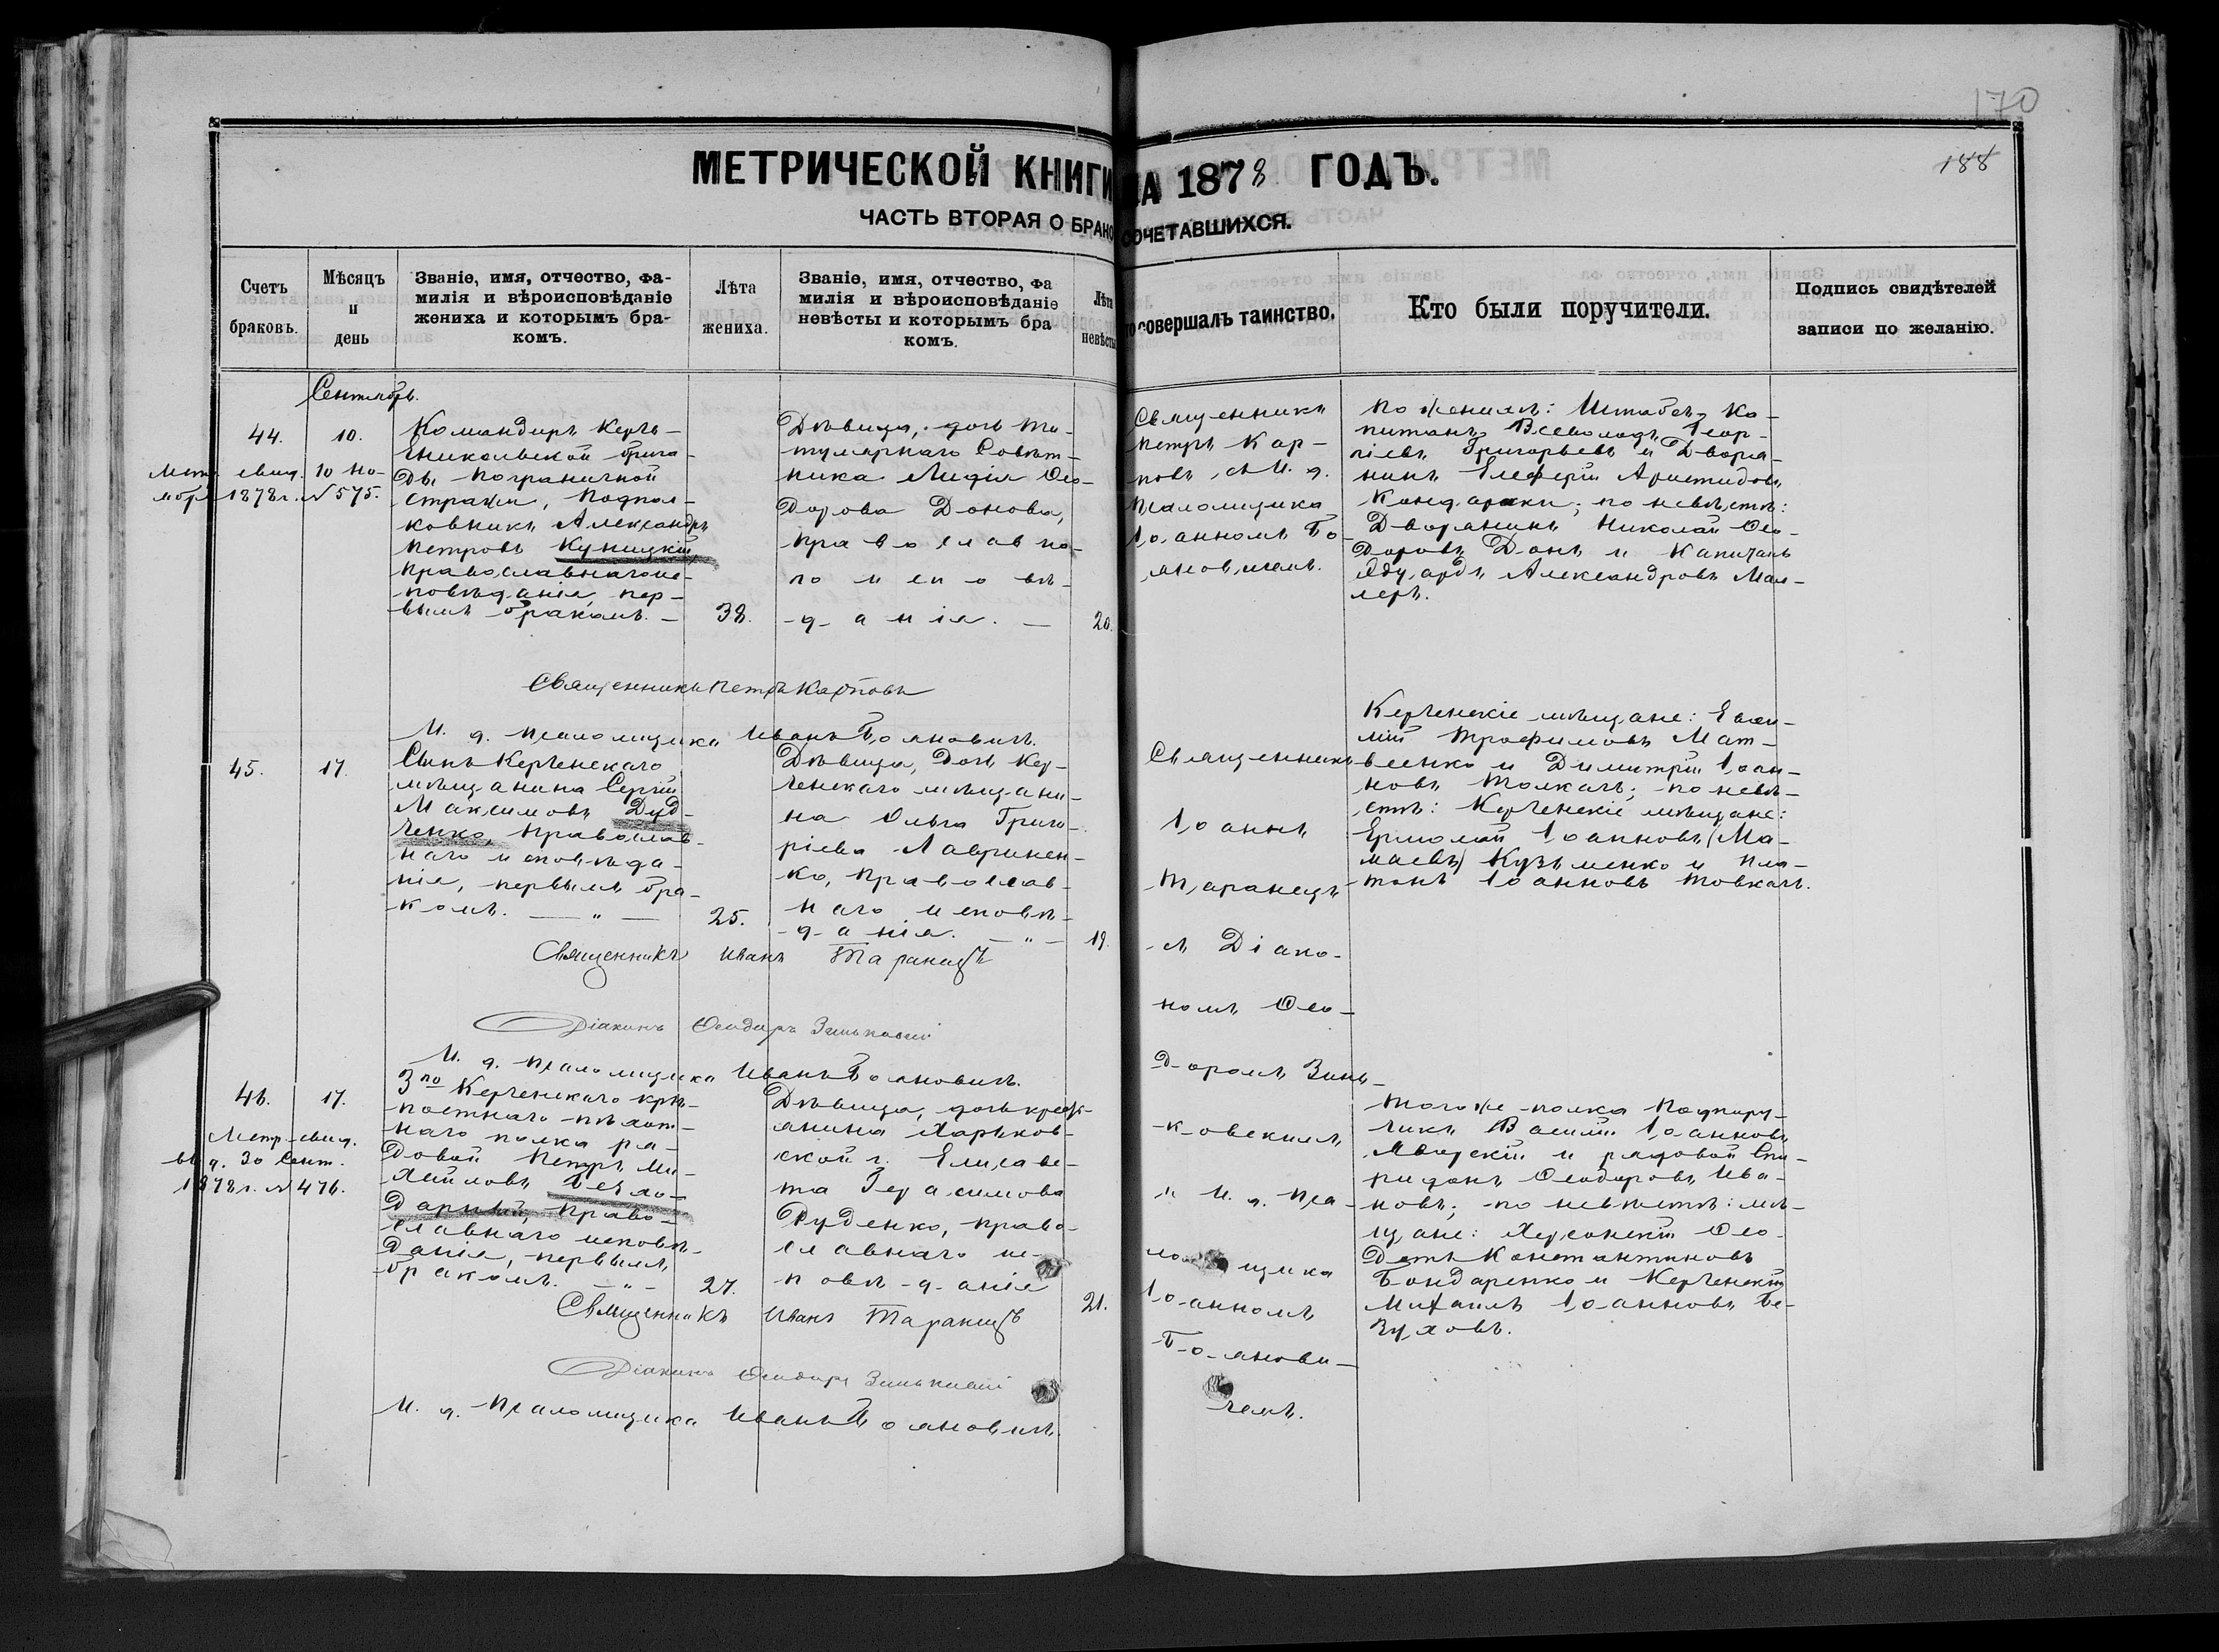 170
188
МЕТРИЧЕСКОЙ КНИГИ НА 1878 ГОДЪ.
ЧАСТЬ ВТОРАЯ О БРАКОСОЧЕТАВШИХСЯ.
Счетъ браковъ.
Мѣсяцъ и день
Званіе, имя, отчество, фа-
милія и вѣроисповѣданіе
жениха и которымъ бра-
комъ.
Лѣта жениха.
Званіе, имя, отчество, фа
милія и вѣроисповѣданіе
невѣсты и которымъ бра
комъ.
Лѣта невѣсты
то совершалъ таинство.
Кто были поручители.
Подпись свидѣтелей
записи по желанію.
Сентябрь.
44.
10.
Метр. свид. 10 Но-
ября 1878 г. № 575.
Командиръ Керчь-
Еникольской брига-
ды пограничной
стражи, Подпол-
ковникъ Александръ
Петровъ Куницкій,
православнаго ис-
повѣданія, пер-
вымъ бракомъ. —
38.
Дѣвица, дочь Ти-
тулярнаго Совѣт-
ника Лидія Ѳео-
дорова Донова,
православна-
го исповѣ-
данія. —
20.
Священникъ
Петръ Кар-
повъ, съ И. д.
псаломщика
Іоанномъ Бо-
яновичемъ.
По женихѣ: Штабсъ-Ка-
питанъ Всеволодъ Геор-
гіевъ Григорьевъ и Дворя-
нинъ Елеферій Аристидовъ
Кондараки; по невѣстѣ:
Дворянинъ Николай Ѳео-
доровъ Донъ и Капитанъ
Эдуардъ Александровъ Мал-
леръ.
Священникъ Петръ Карповъ
И. д. псаломщика Иванъ Бояновичъ.
45.
17.
Сынъ Керченскаго
мѣщанина Сергій
Максимовъ Дуд-
ченко, православ-
наго исповѣда-
нія, первымъ бра-
комъ. — " —
25.
Дѣвица, дочь Кер-
ченскаго мѣщани-
на Ольга Григо-
ріева Лавринен-
ко, православ-
наго исповѣ-
данія. — " —
19.
Священникъ
Іоаннъ
Таранецъ
съ Діако-
номъ Ѳео-
доромъ Зинь-
ковскимъ
и И. д. пса-
ломщика
Іоанномъ
Боянови-
чемъ.
Керченскіе мѣщане: Евѳи-
мій Трофимовъ Мат-
веенко и Димитрій Іоан-
новъ Толкачъ; по невѣ-
стѣ: Керченскіе мѣщане:
Ермолай Іоанновъ (Ма-
маевъ) Кузьменко и Пла-
тонъ Іоанновъ Товкачъ.
Священникъ Иванъ Таранецъ
Діаконъ Ѳеодоръ Зиньковскій
И. д. псаломщика Иванъ Бояновичъ.
46.
17.
Метр. свид.
выд. 30 Сент.
1878 г. № 476.
3го Керченскаго крѣ-
постнаго пѣхот-
наго полка ря-
довой Петръ Ми-
хайловъ Безхо-
дарный, право-
славнаго исповѣ-
данія, первымъ
бракомъ. — " —
27.
Дѣвица, дочь кресть-
янина Харьков-
ской г. Елисаве-
та Герасимова
Руденко, право-
славнаго ис-
повѣданія
21.
Того же полка Подпору-
чикъ Василій Іоанновъ
Яворскій и рядовой Спи-
ридонъ Ѳеодоровъ Ива-
новъ; по невѣстѣ: мѣ-
щане: Херсонскій Ѳео-
дотъ Константиновъ
Бондаренко и Керченскій
Михаилъ Іоанновъ Бе-
зуховъ.
Священникъ Иванъ Таранецъ
Діаконъ Ѳеодоръ Зиньковскій
И. д. псаломщика Иванъ Бояновичъ.